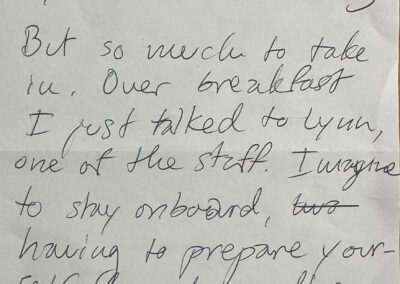 But so much to take
in. Over breakfast
I just talked to Lynn,
one of the staff. Imagine
to stay onboard, two
having to prepare your-